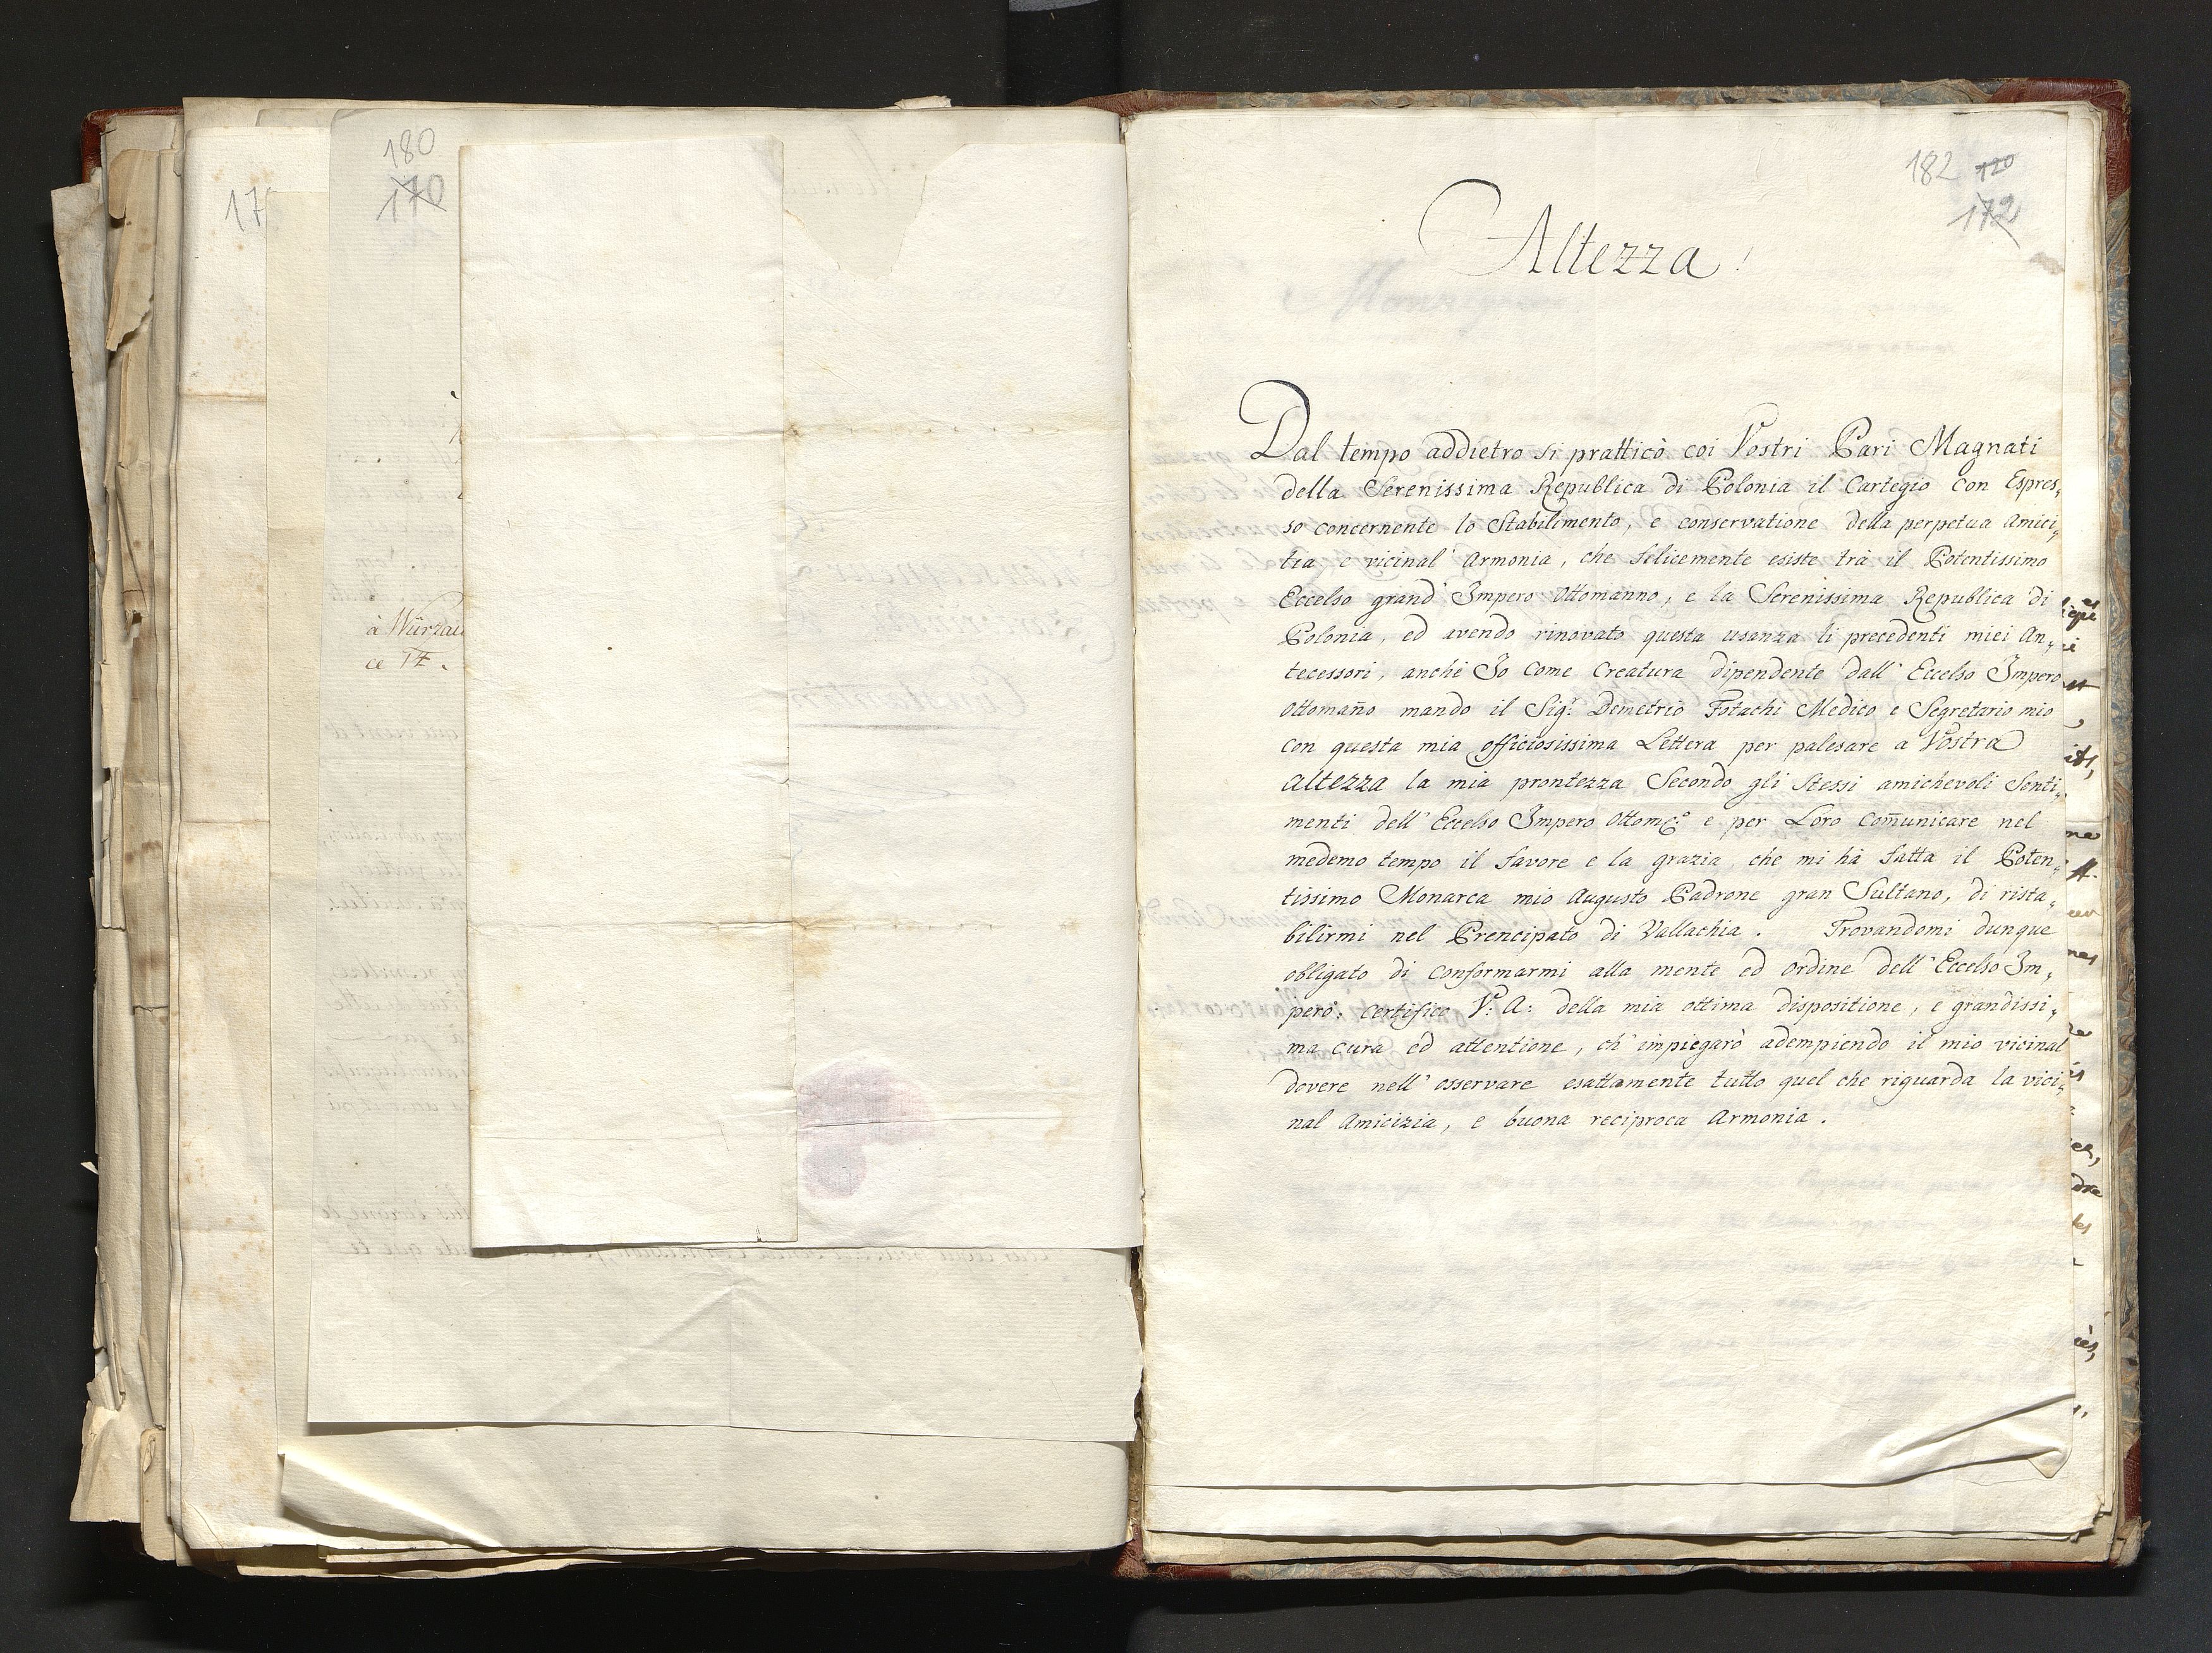 180
170
17
à Würzau
ce 14.
182 120
172
Altezza!
Dal tempo addietro si pratticò coi Vostri Pari Magnati
della Serenissima Republica di Polonia il Cartegio con Espres,,
so concernente lo Stabilimento, e conservatione della perpetua Amici,,
tia e vicinal' Armonia, che felicemente esiste trà il Potentissimo
Eccelso grand' Impero Ottomanno, e la Serenissima Republica di
Polonia, ed avendo rinovato questa usanza li precedenti miei An,,
tecessori, anche Io come Creatura dipendente dall' Eccelso Impero
Ottomaño mando il Sigr: Demetrio Fotachi Medico e Segretario mio
con questa mia officiosissima Lettera per palesare a Vostra
Altezza la mia prontezza Secondo gli Stessi amichevoli Senti,,
menti dell' Eccelso Impero Ottom:o e per Loro Com̃unicare nel
medemo tempo il favore e la grazia che mi hà fatta il Poten,,
tissimo Monarca mio Augusto Padrone gran Sultano, di rista,,
bilirmi nel Prencipato di Vallachia. Trovandomi dunque
obligato di conformarmi alla mente ed ordine dell' Eccelso Im,,
pero: certifico V: A: della mia ottima dispositione, e grandissi,,
ma cura ed attentione, ch' impiegarò adempiendo il mio vicinal
dovere nell' osservare esattamente tutto quel che riguarda la vici,,
nal Amicizia, e buona reciproca Armonia.